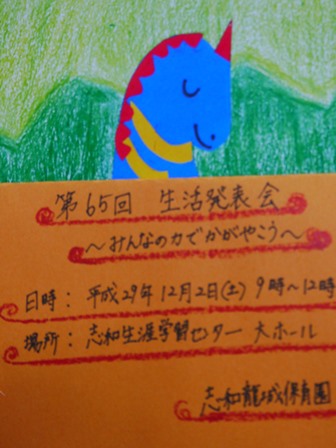 第65回 生活発表会
～みんなの力でかがやこう～
日時：平成29年12月2日(土) 9時～12時
場所：志和生涯学習センター 大ホール
志和龍城保育園